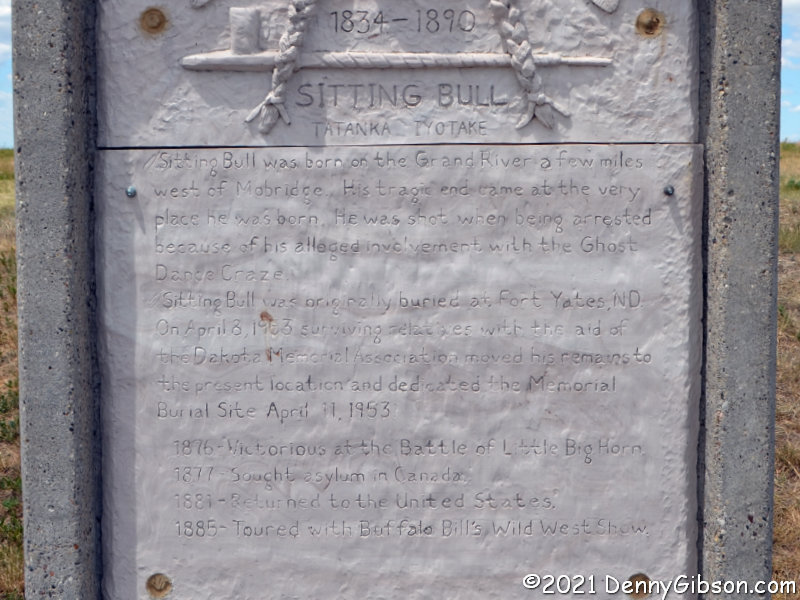 1834-1890
SITTING BULL
TATANKA IYOTAKE
Sitting Bull was born on the Grand River a few miles
west of Mobridge. His tragic end came at the very
place he was born. He was shot when being arrested
because of his alleged involvement with the Ghost
Dance Craze.
Sitting Bull was originally buried at Fort Yates, ND.
On April 8, 1953 surviving relatives with the aid of
the Dakota Memorial Association moved his remains to
the present location and dedicated the Memorial
Burial Site April 11, 1953.
1876-Victorious at the Battle of Little Big Horn.
1877-Sought asylum in Canada.
1881-Returned to the United States.
1885-Toured with Buffalo Bill's Wild West Show.
©2021 DennyGibson.com